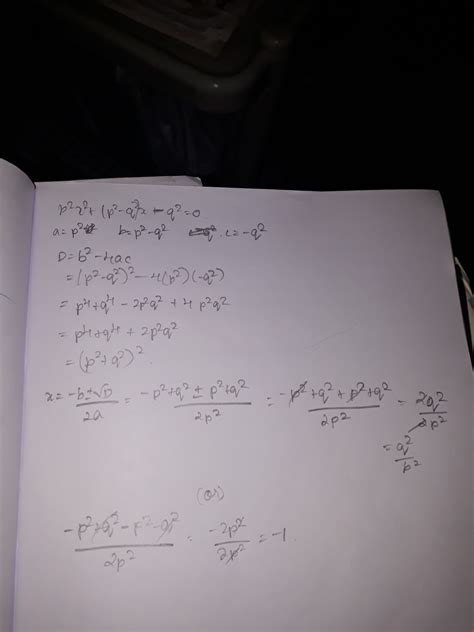 p²x² + (p²-q²)x - q² = 0
a = p² b = p²-q² c = -q²
D = b² - 4ac
= (p²-q²)² - 4(p²)(-q²)
= p⁴ + q⁴ - 2p²q² + 4p²q²
= p⁴ + q⁴ + 2p²q²
= (p²+q²)².
x = -b±√D / 2a = -p²+q² ± p²+q² / 2p² = -p²+q²+p²+q² / 2p² = 2q² / 2p²
= q² / p²
(or)
-p²+q²-p²-q² / 2p² = -2p² / 2p² = -1.